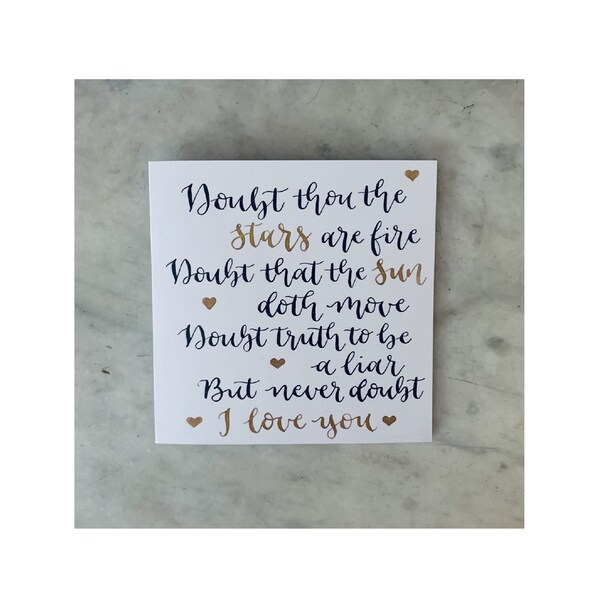 Doubt thou the
stars are fire
Doubt that the sun
doth move
Doubt truth to be
a liar
But never doubt
I love you